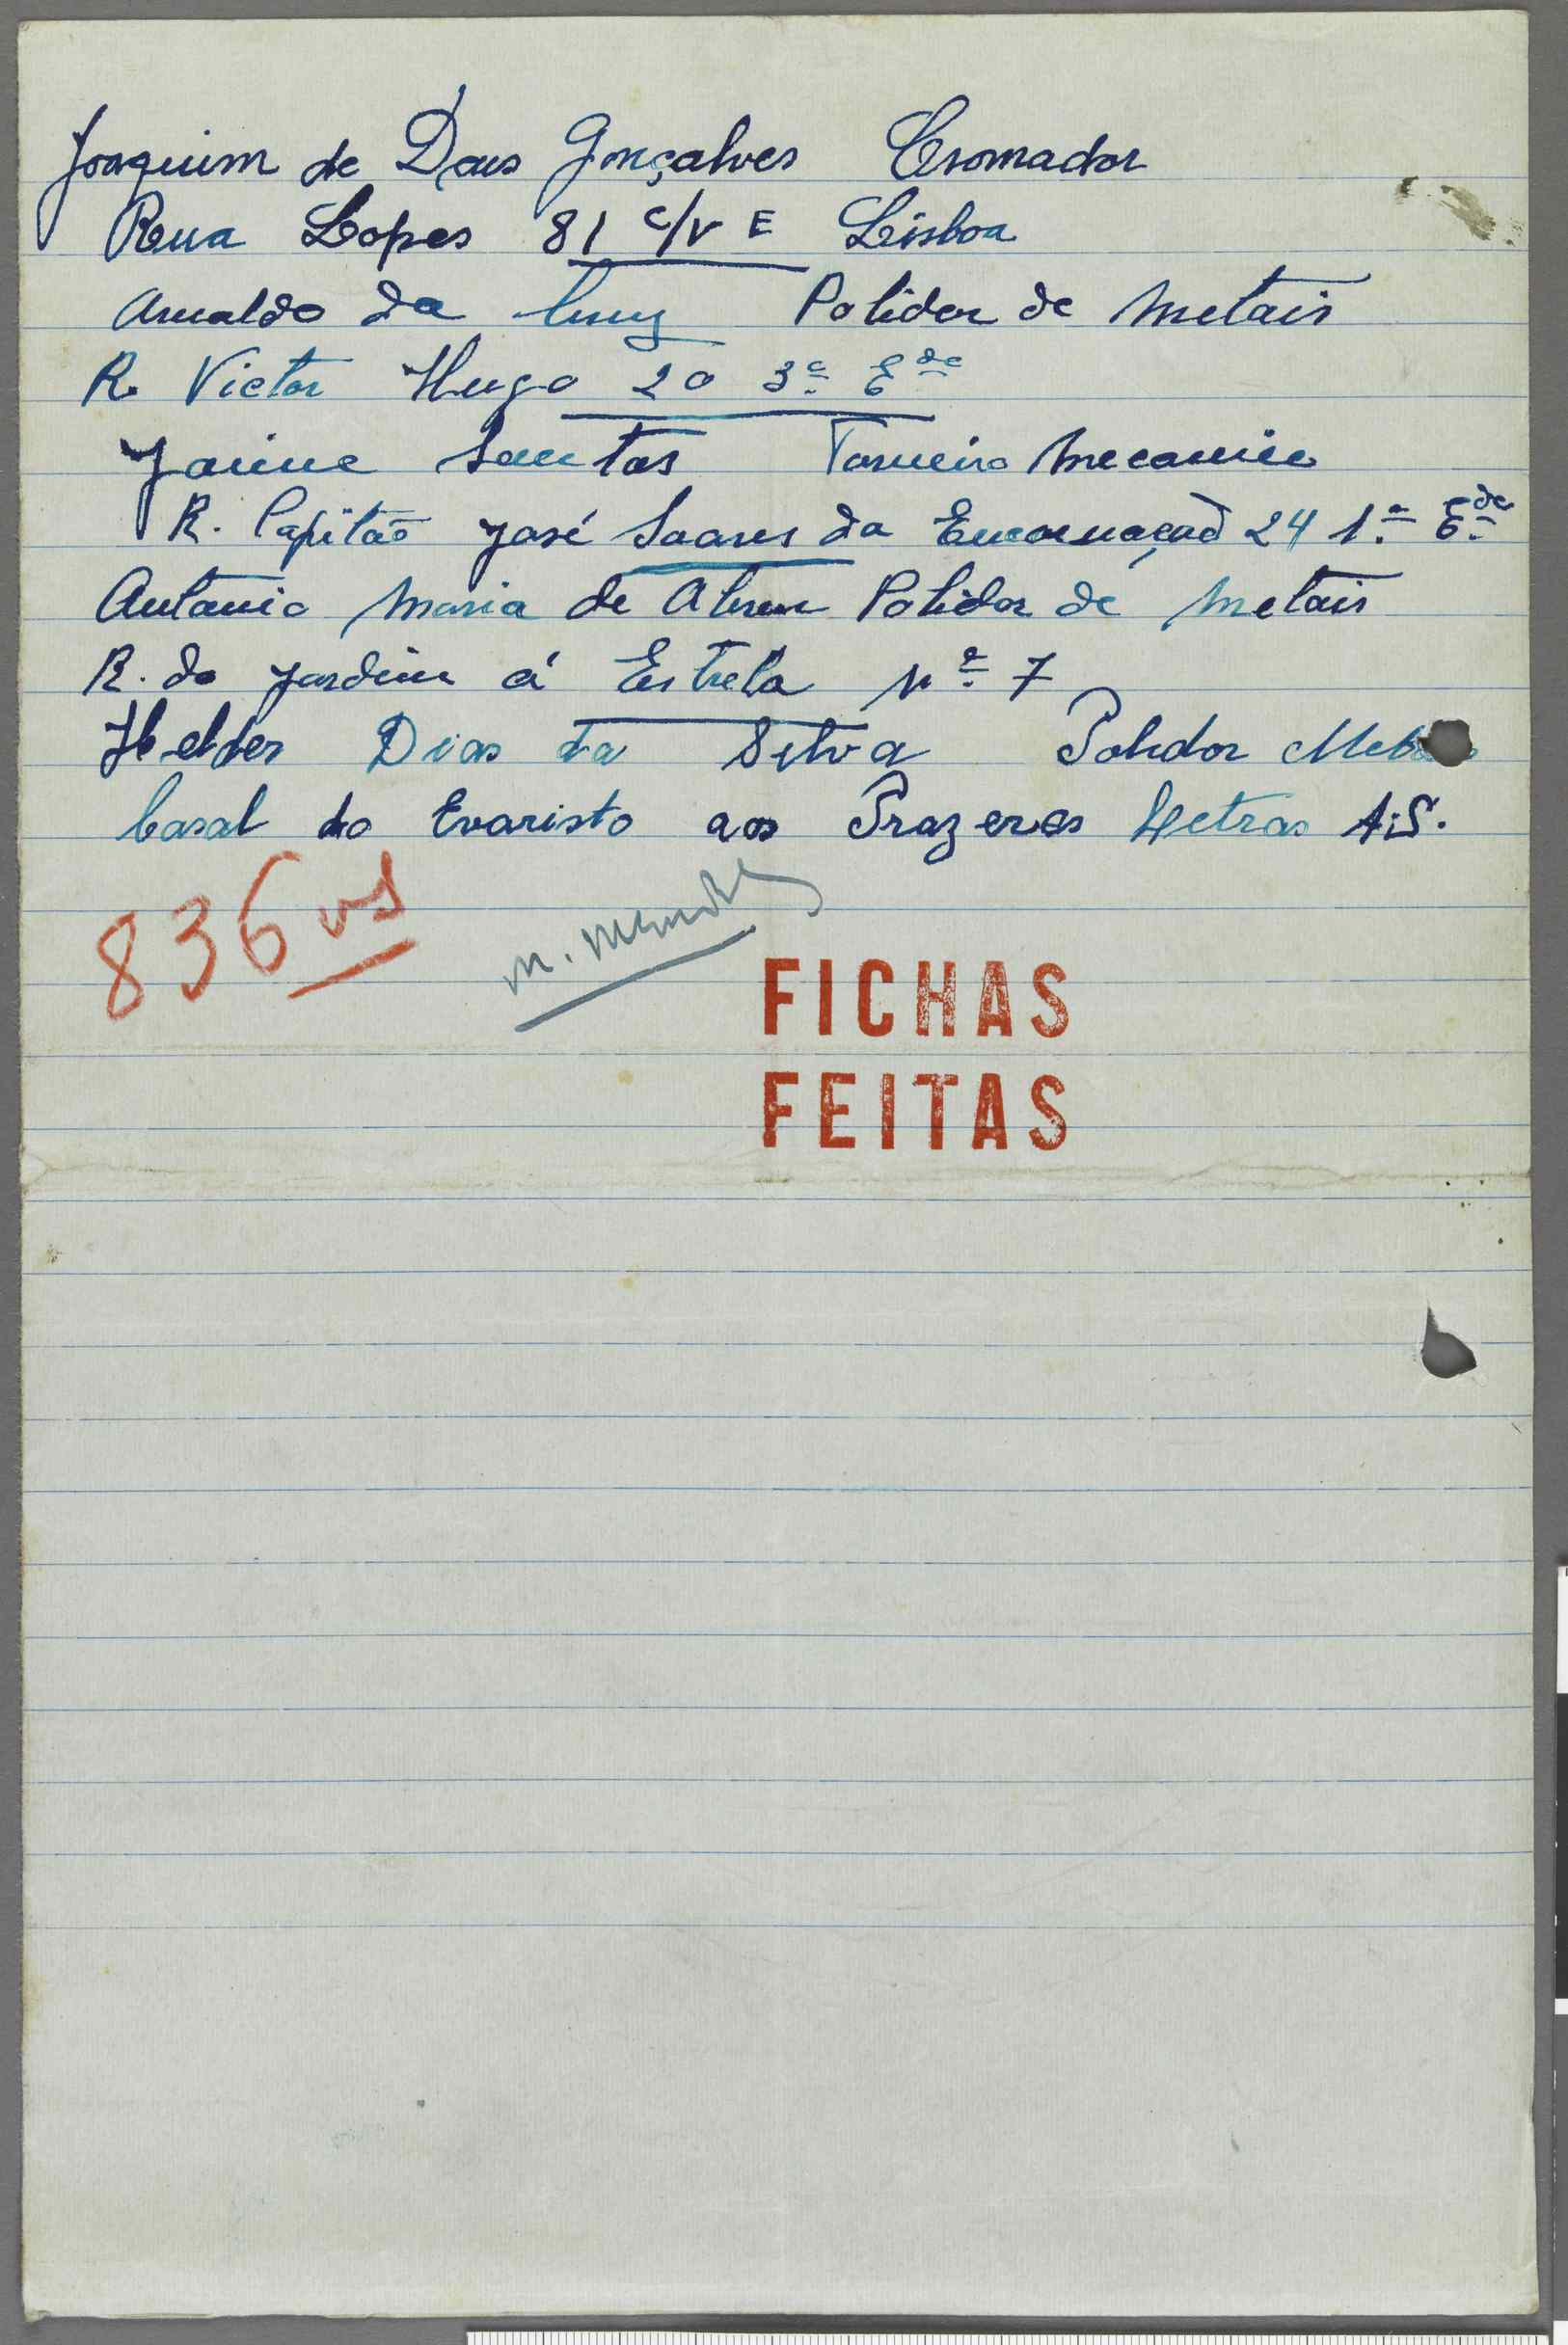 Joaquim de Deus Gonçalves Cromador
Rua Lopes 81 c/v E Lisboa
Arnaldo da Cruz Polidor de Metais
R. Victor Hugo 20 3º Eдо
Jaime Santos Torneiro Mecanico
R. Capitão José Soares da Encarnação 24 1º Edo
Antonio Maria de Abreu Polidor de Metais
R. do Jardim á Estrela nº 7
Helder Dias da Silva Polidor
Casal do Evaristo aos Prazeres Letras A.S.
836
M. Mendes
FICHAS
FEITAS